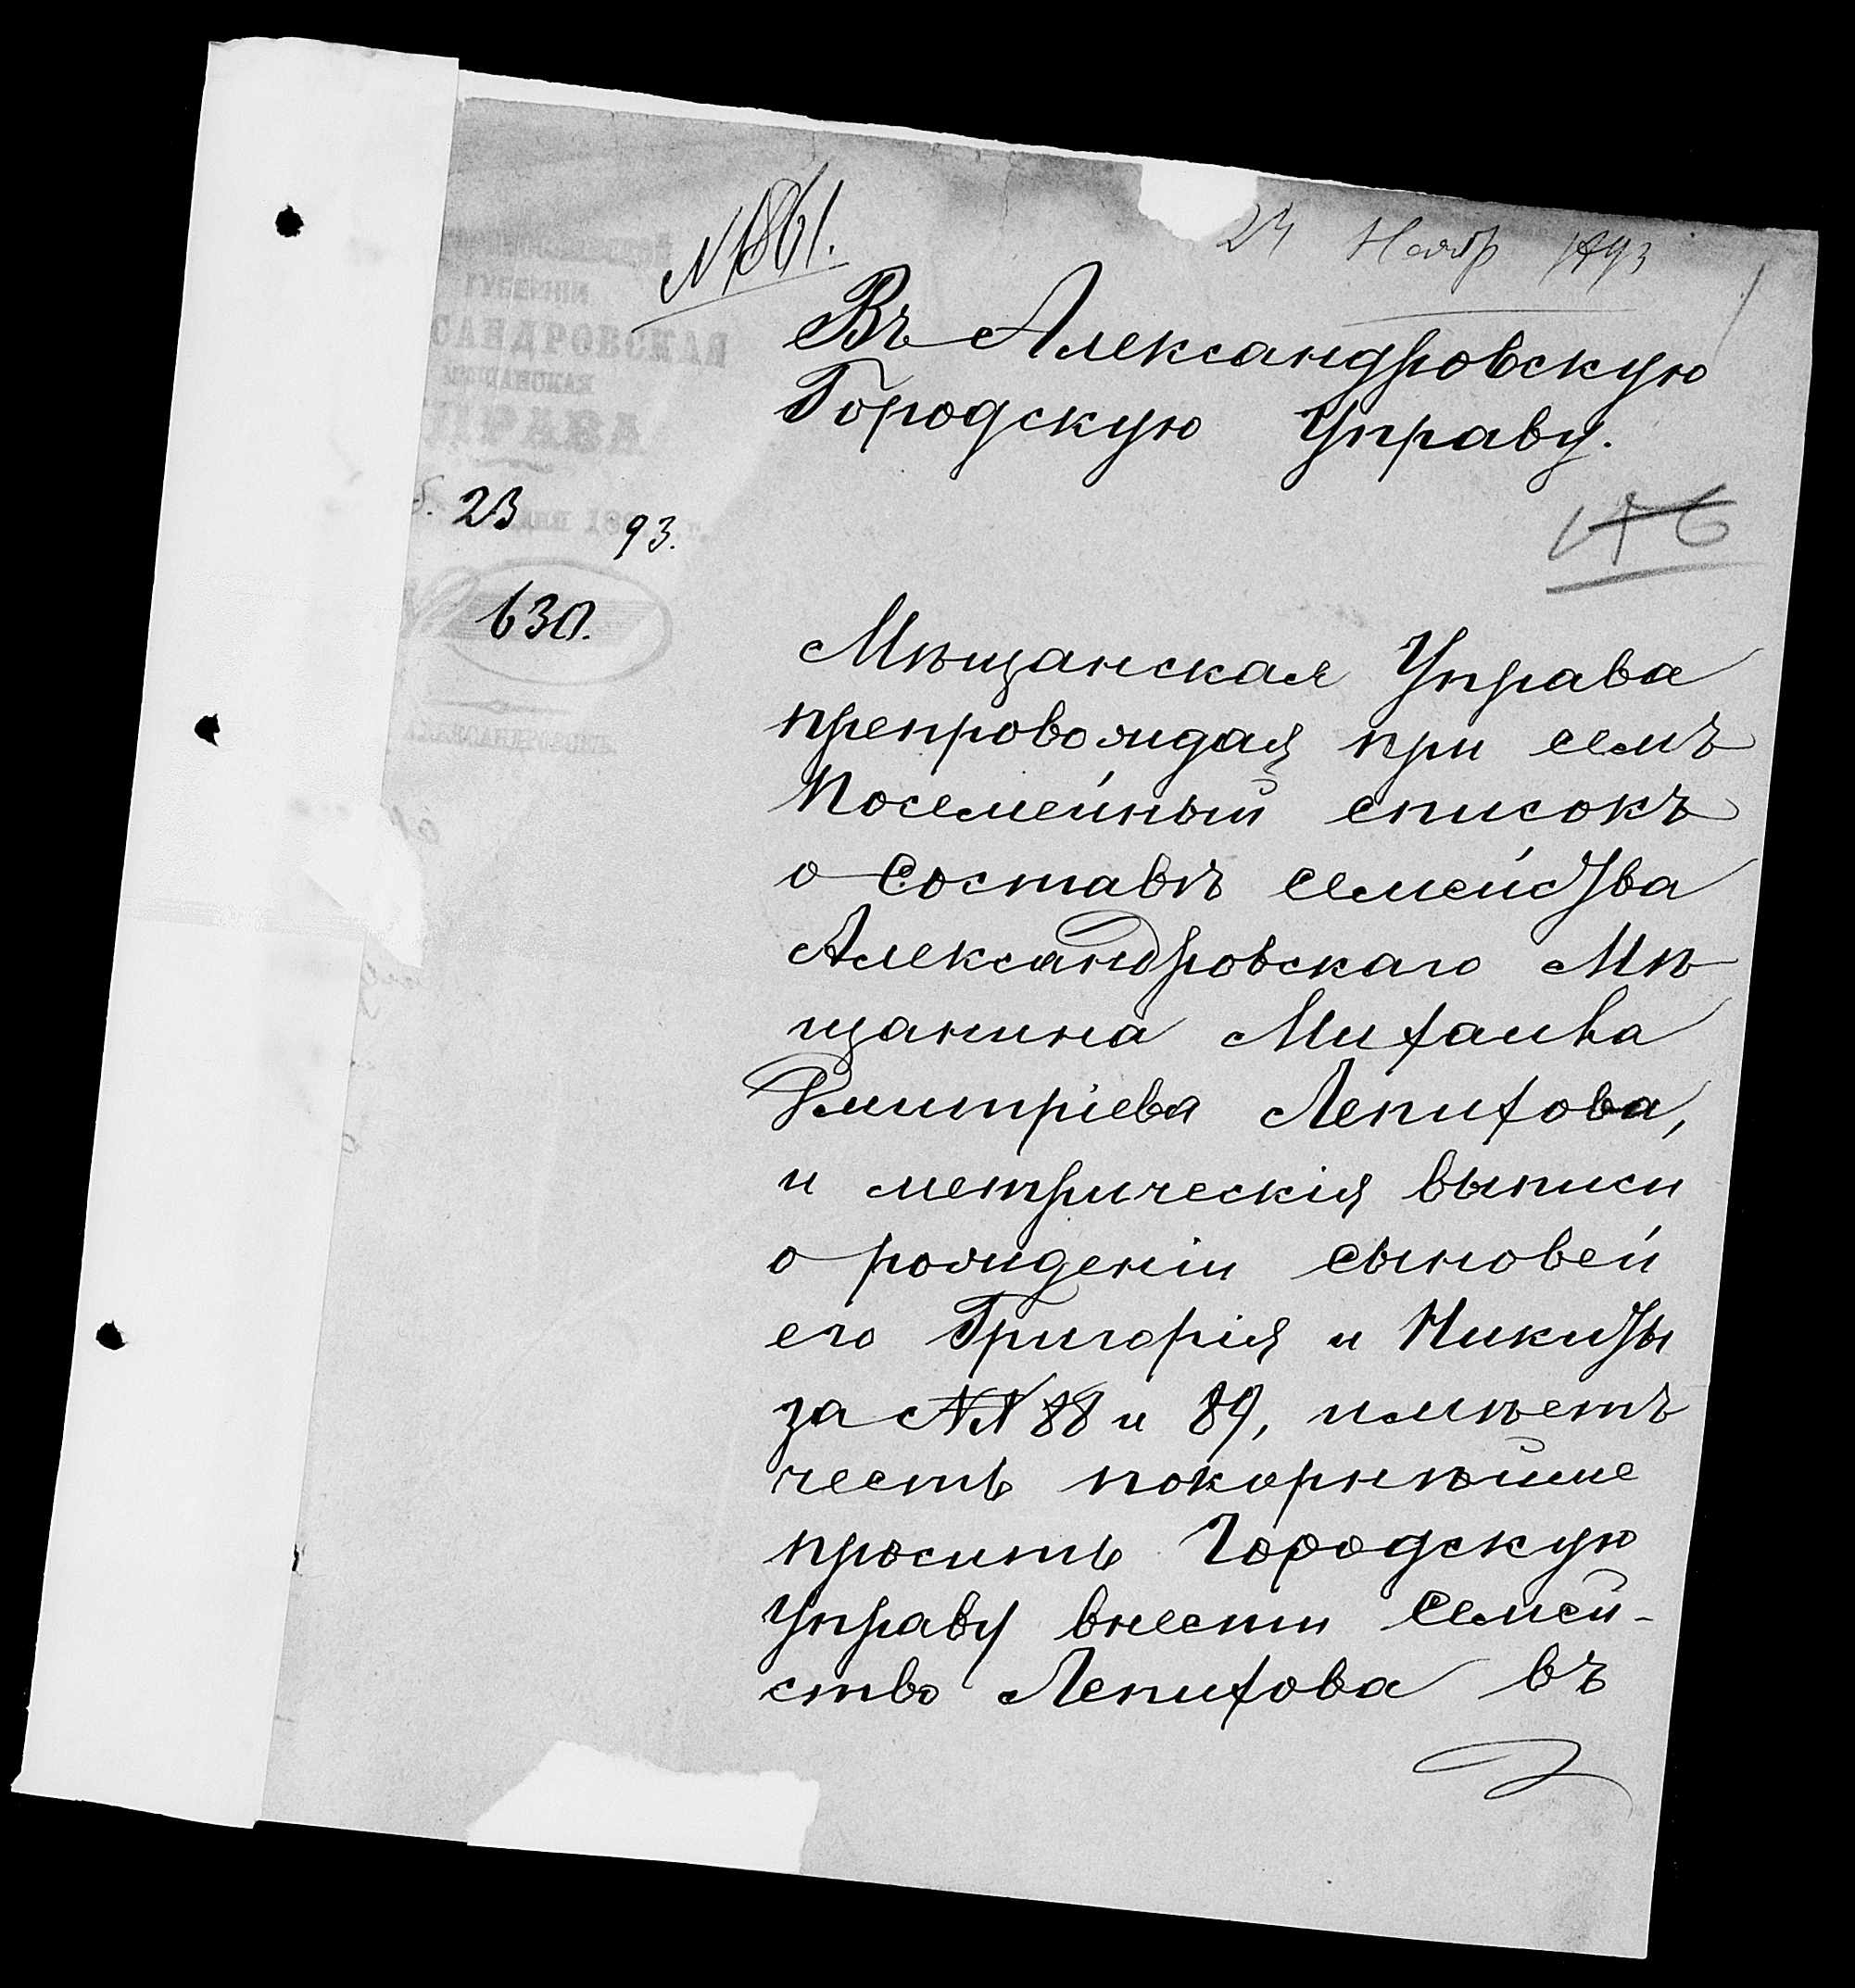 № 1861.
24 Нояб 1893
ГУБЕРНІИ
САНДРОВСКАЯ
МѢЩАНСКАЯ
ПРАВА
Въ Александровскую
Городскую Управу.
23 дня 1893 г.
№ 630.
176
АЛЕКСАНДРОВСКЪ.
Мѣщанская Управа
препровождая при семъ
Посемейный списокъ
о Составѣ Семейства
Александровскаго Мѣ
щанина Михаила
Дмитріева Лепихова,
и метрическія выписи
о рожденіи Сыновей
его Григорія и Никиты
за №№ 88 и 89, имѣетъ
честь покорнѣйше
просить Городскую
Управу внести Семей-
ство Лепихова въ